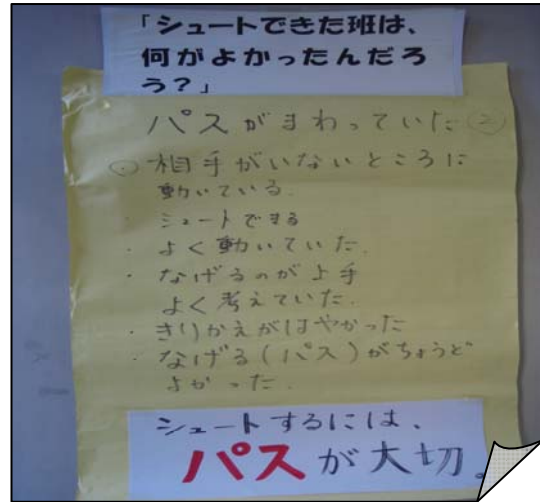 「シュートできた班は、
何がよかったんだろ
う？」
パスがまわっていた②
○相手がいないところに
動いている。
・シュートできる
・よく動いていた。
・なげるのが上手
よく考えていた。
・きりかえがはやかった
・なげる(パス)がちょうど
よかった。
シュートするには、
パスが大切。